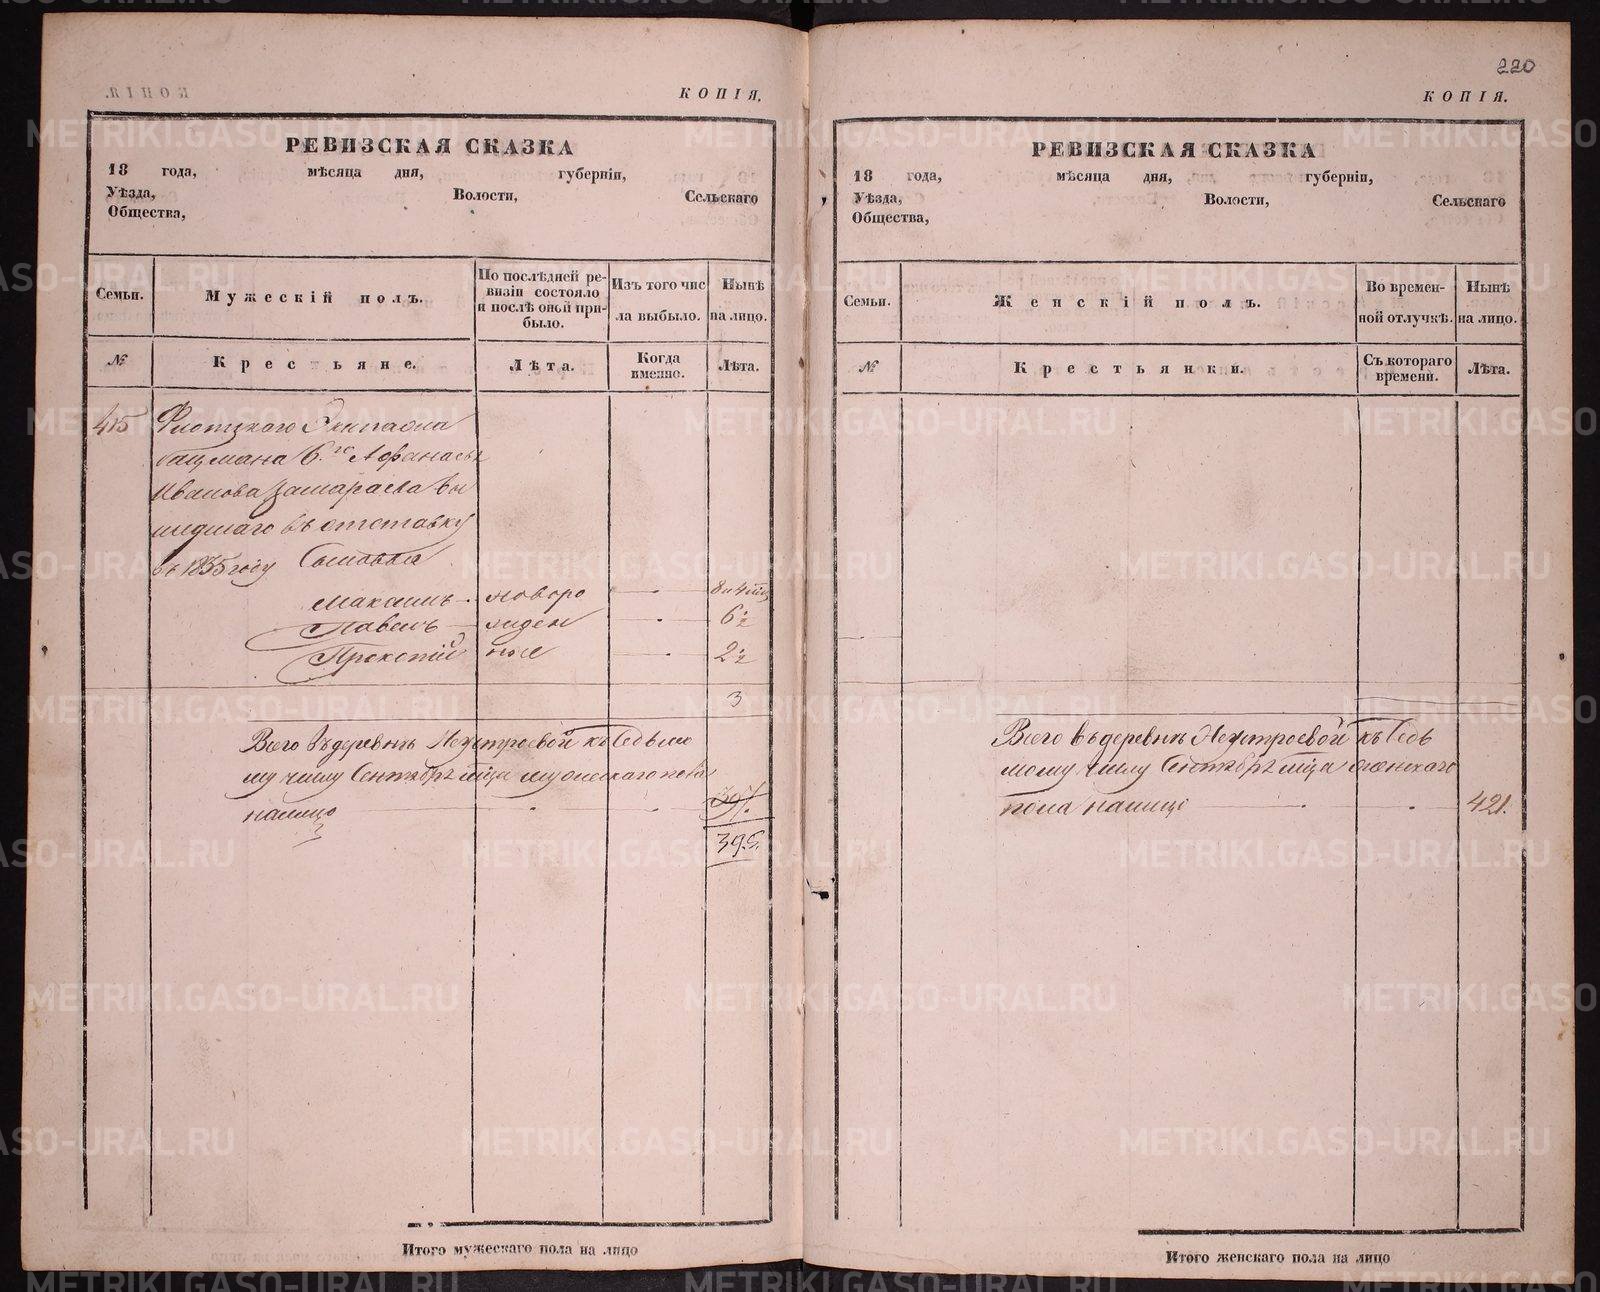 220
КОПІЯ.
РЕВИЗСКАЯ СКАЗКА
18 года, мѣсяца дня, губерніи,
Уѣзда, Волости, Сельскаго
Общества,
Семьи.
Мужескій полъ.
По послѣдней ре-
визіи состояло
и послѣ оной при-
было.
Изъ того чис
ла выбыло.
Нынѣ
на лицо.
№
Крестьяне.
Лѣта.
Когда
именно.
Лѣта.
415
Флотскаго Экипажа
6.го Афанасья
Иванова Замараева вы
шедшаго въ отставку
въ 1835 году Сыновья
Максимъ новоро
Павелъ жден 6½
Прокопій ные 2½
3
Всего въ деревнѣ къ Седьмо
му числу Сентября мѣца мужескаго пола
налицо
Итого мужескаго пола на лицо
КОПІЯ.
РЕВИЗСКАЯ СКАЗКА
18 года, мѣсяца дня, губерніи,
Уѣзда, Волости, Сельскаго
Общества,
Семьи.
Женскій полъ.
Во времен-
ной отлучкѣ.
Нынѣ
на лицо.
№
Крестьянки.
Съ котораго
времени.
Лѣта.
Всего въ деревнѣ къ Седь
мому числу Сентября мѣца женскаго
пола налицо 421.
Итого женскаго пола на лицо
METRIKI.GASO-URAL.RU